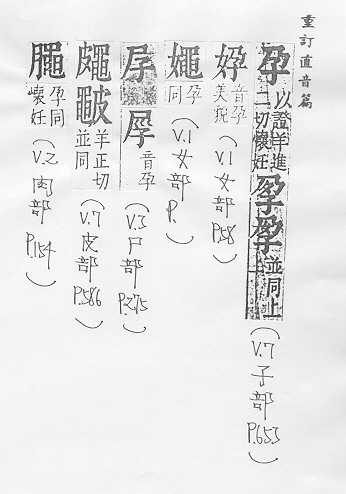 重訂直音篇
孕 以證羊進二切懷妊 孕孕 並同上 (V.7 子部 P.653)
㚺 音孕美㒵 (V.1 女部 P.58)
孕同 (V.1 女部 P. )
音孕 (V.3 尸部 P.275)
羊正切並同 (V.7 皮部 P.586)
孕同懷妊 (V.2 肉部 P.154)